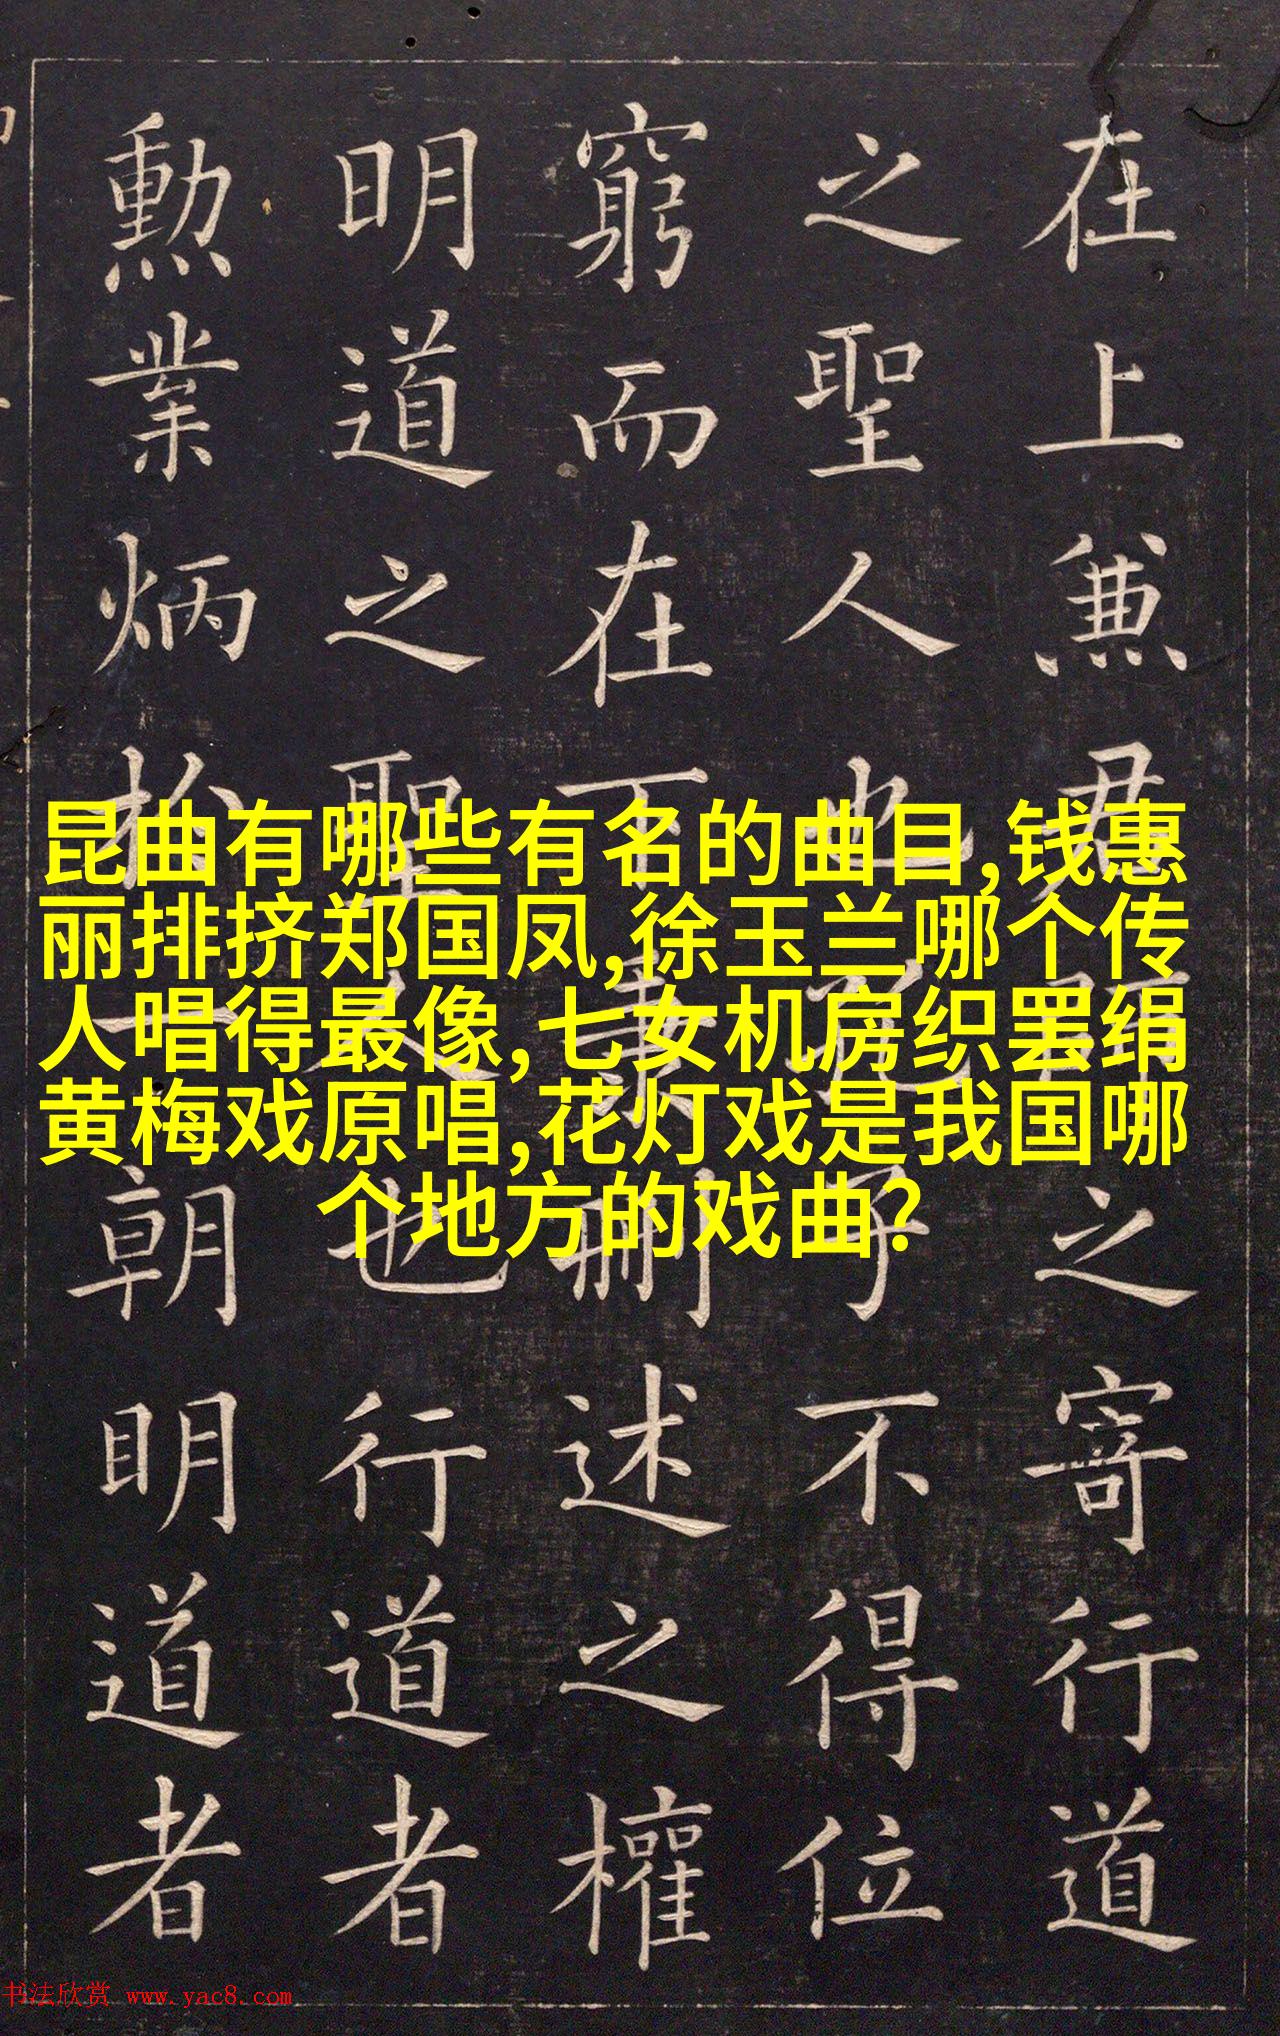 在上兼君師之寄行道
之聖人也乎不得位
窮而在下刪述之權
明道之聖人也行道者
勳業炳於一朝明道者
昆曲有哪些有名的曲目,钱惠
丽排挤郑国凤,徐玉兰哪个传
人唱得最像,七女机房织罢绢
黄梅戏原唱,花灯戏是我国哪
个地方的戏曲?
书法欣赏 www.yac8.com